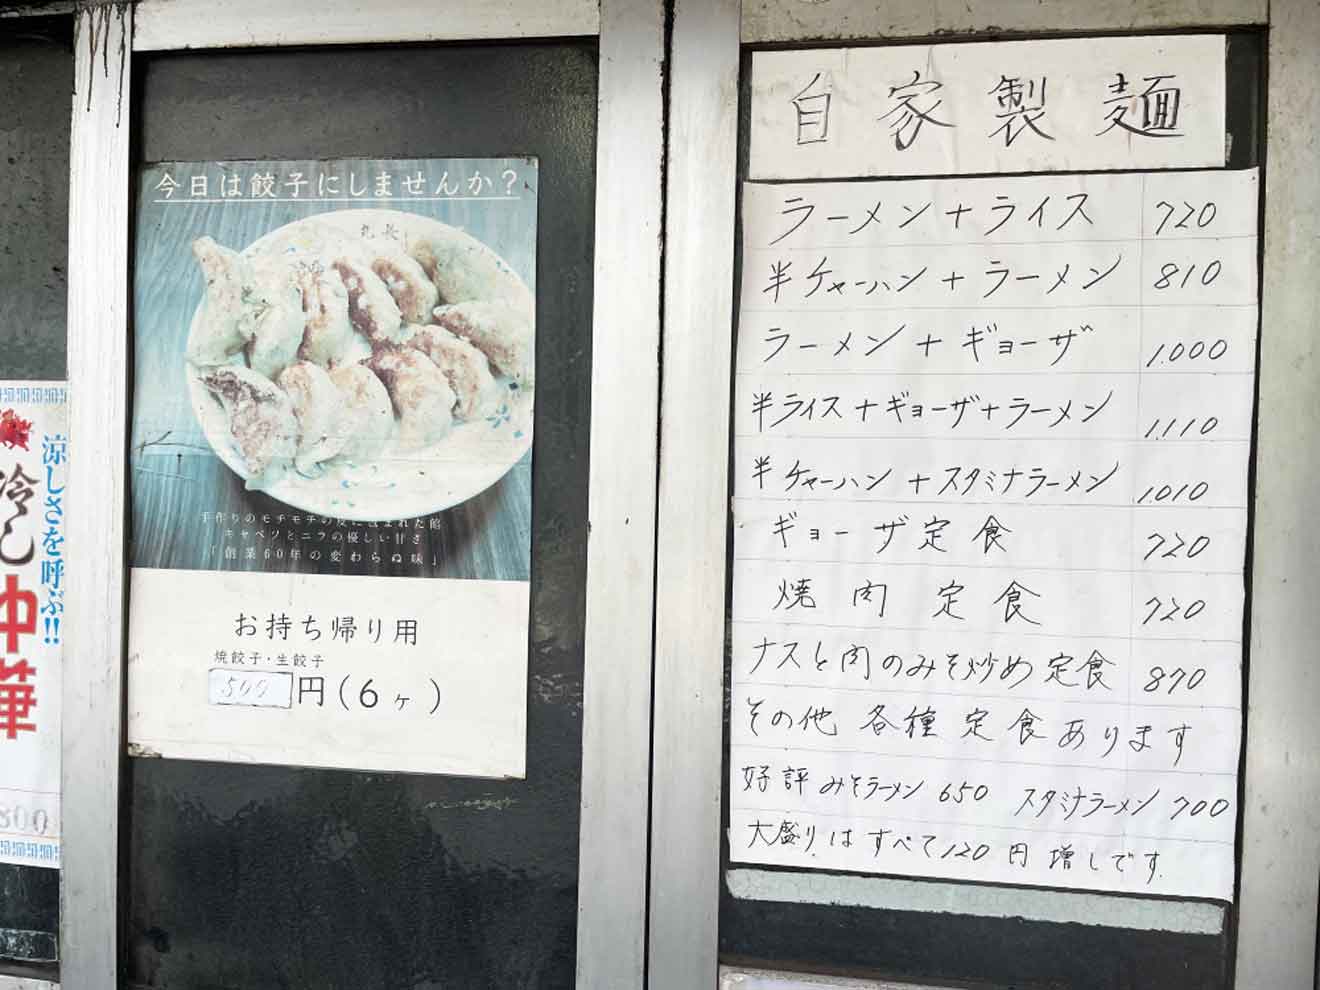 今日は餃子にしませんか?
丸長
手作りのモチモチの皮に包まれた餡
キャベツとニラの優しい甘さ
「創業60年の変わらぬ味」
お持ち帰り用
焼餃子・生餃子
500円(6ヶ)
涼しさを呼ぶ!!
冷し中華
800
自家製麺
ラーメン+ライス 720
半チャーハン+ラーメン 810
ラーメン+ギョーザ 1,000
半ライス+ギョーザ+ラーメン 1,110
半チャーハン+スタミナラーメン 1,010
ギョーザ定食 720
焼肉定食 720
ナスと肉のみそ炒め定食 870
その他各種定食あります
好評みそラーメン 650 スタミナラーメン 700
大盛りはすべて120円増しです.